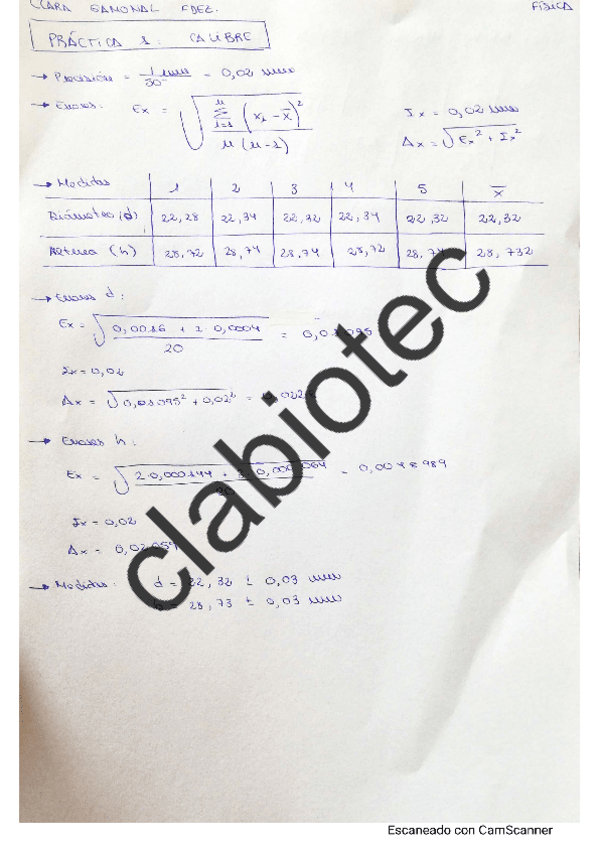 CLARA SAMONAL FDEZ. FÍSICA
PRÁCTICA 1: CALIBRE
→ Precisión = 1 mm / 50 = 0,02 mm
→ Errores: Ex = √( Σ (xi - x̄)² / n(n-1) ) Ix = 0,02 mm
Δx = √(Ex² + Ix²)
→ Medidas 1 2 3 4 5 x̄
Diámetro (d) 22,28 22,34 22,32 22,34 22,32 22,32
Altura (h) 28,72 28,74 28,74 28,72 28,74 28,732
→ Errores d:
Ex = √( 0,0016 + 2·0,0004 / 20 ) =
Ix = 0,02
Δx = √(0,01095² + 0,02²) =
→ Errores h:
Ex =
Ix = 0,02
Δx =
→ Medidas: d = 22,32 ± 0,03 mm
= 28,73 ± 0,03 mm
clabiotec
Escaneado con CamScanner